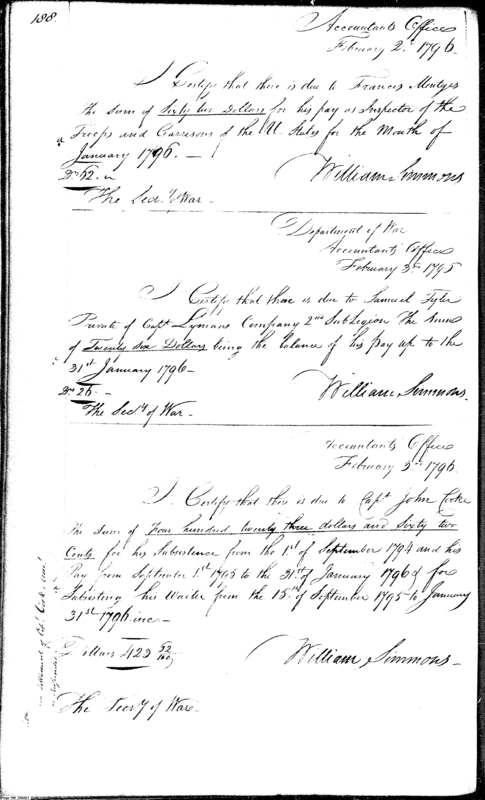 188.
Accountants Office
February 2d. 1796.
I Certify that there is due to Francis Mentges
the sum of Sixty two Dollars for his pay as Inspector of the
Troops and Garrisons of the U. States for the Month of
January 1796. —
Ds. 62. —
William Simmons
The Secy. of War —
Department of War
Accountants Office
February 3d. 1795
I Certify that there is due to Samuel Tyler
Private of Capt. Lymans Company 2nd SubLegion The sum
of Twenty six Dollars being the balance of his pay up to the
31st January 1796 —
Ds. 26. —
William Simmons.
The Secy. of War —
Accountants Office
February 3d. 1796.
I Certify that there is due to Capt. John Cooke
The sum of Four hundred twenty three dollars and Sixty two
Cents for his Subsistence from the 1st of September 1794 and his
Pay from September 1st. 1795 to the 31st of January 1796 & for
Subsisting his Waiter from the 15th of September 1795 to January
31st 1796 inc. —
Dollars 423 62/100
William Simmons —
The Secry of War —
settlement of